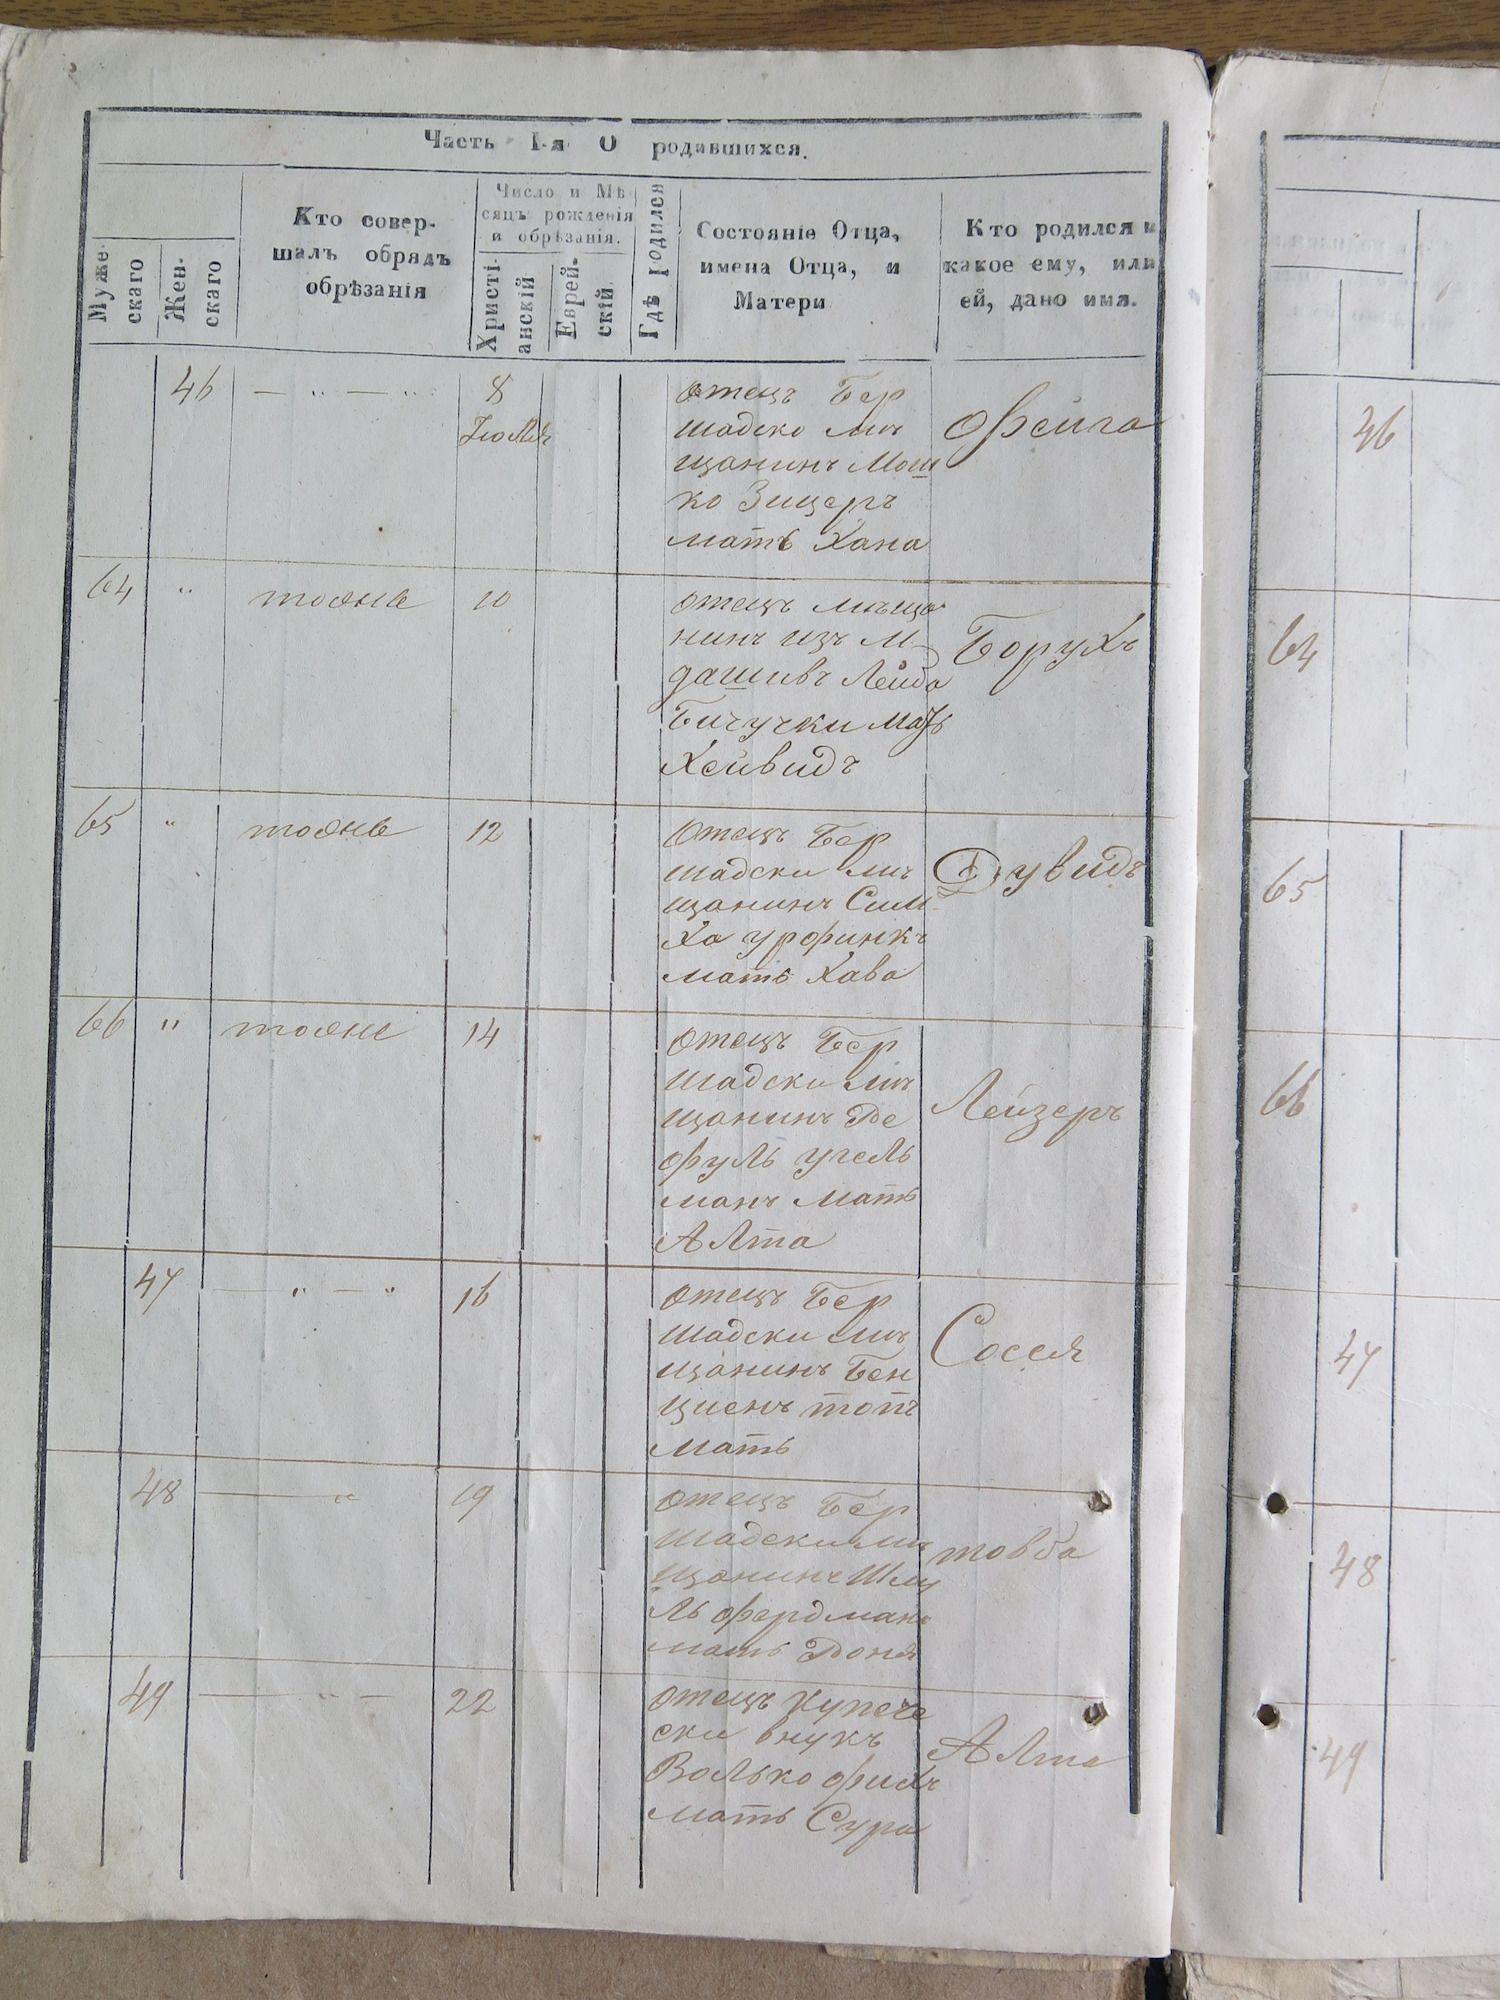 Часть I-я О родившихся.
Мужескаго
Женскаго
Кто совер-
шалъ обрядъ
обрѣзанія
Число и Мѣ
сяцъ рожденія
и обрѣзанія.
Христі-
анскій
Еврей-
скій
Гдѣ родился
Состояніе Отца,
имена Отца, и
Матери
Кто родился и
какое ему, или
ей, дано имя.
46 — " — " 8
Июля
отецъ Бер
шадско мѣ
щанинъ Мош
ко Зицеръ
мать Хана
Фейга
64 " тоэне 10
отецъ мѣща
нинъ изъ м
дашивъ Лейба
Бичучки мать
Хейвидъ
Борухъ
65 " тоэне 12
отецъ Бер
шадски мѣ
щанинъ Сим
ха урфинкъ
мать Хава
Дувидъ
66 " тоэне 14
отецъ Бер
шадски мѣ
щанинъ Ре
фуль Угель
манъ мать
Алта
Лейзеръ
47 — " — " 16
отецъ Бер
шадски мѣ
щанинъ Бен
циенъ топъ
мать
Сосся
48 — " 19
отецъ Бер
шадски мѣ
щанинъ Шму
ль фердманъ
мать Роня
товба
49 — " — 22
отецъ купече
ски внукъ
Волько фихъ
мать Сура
Алта
46
64
65
66
47
48
49